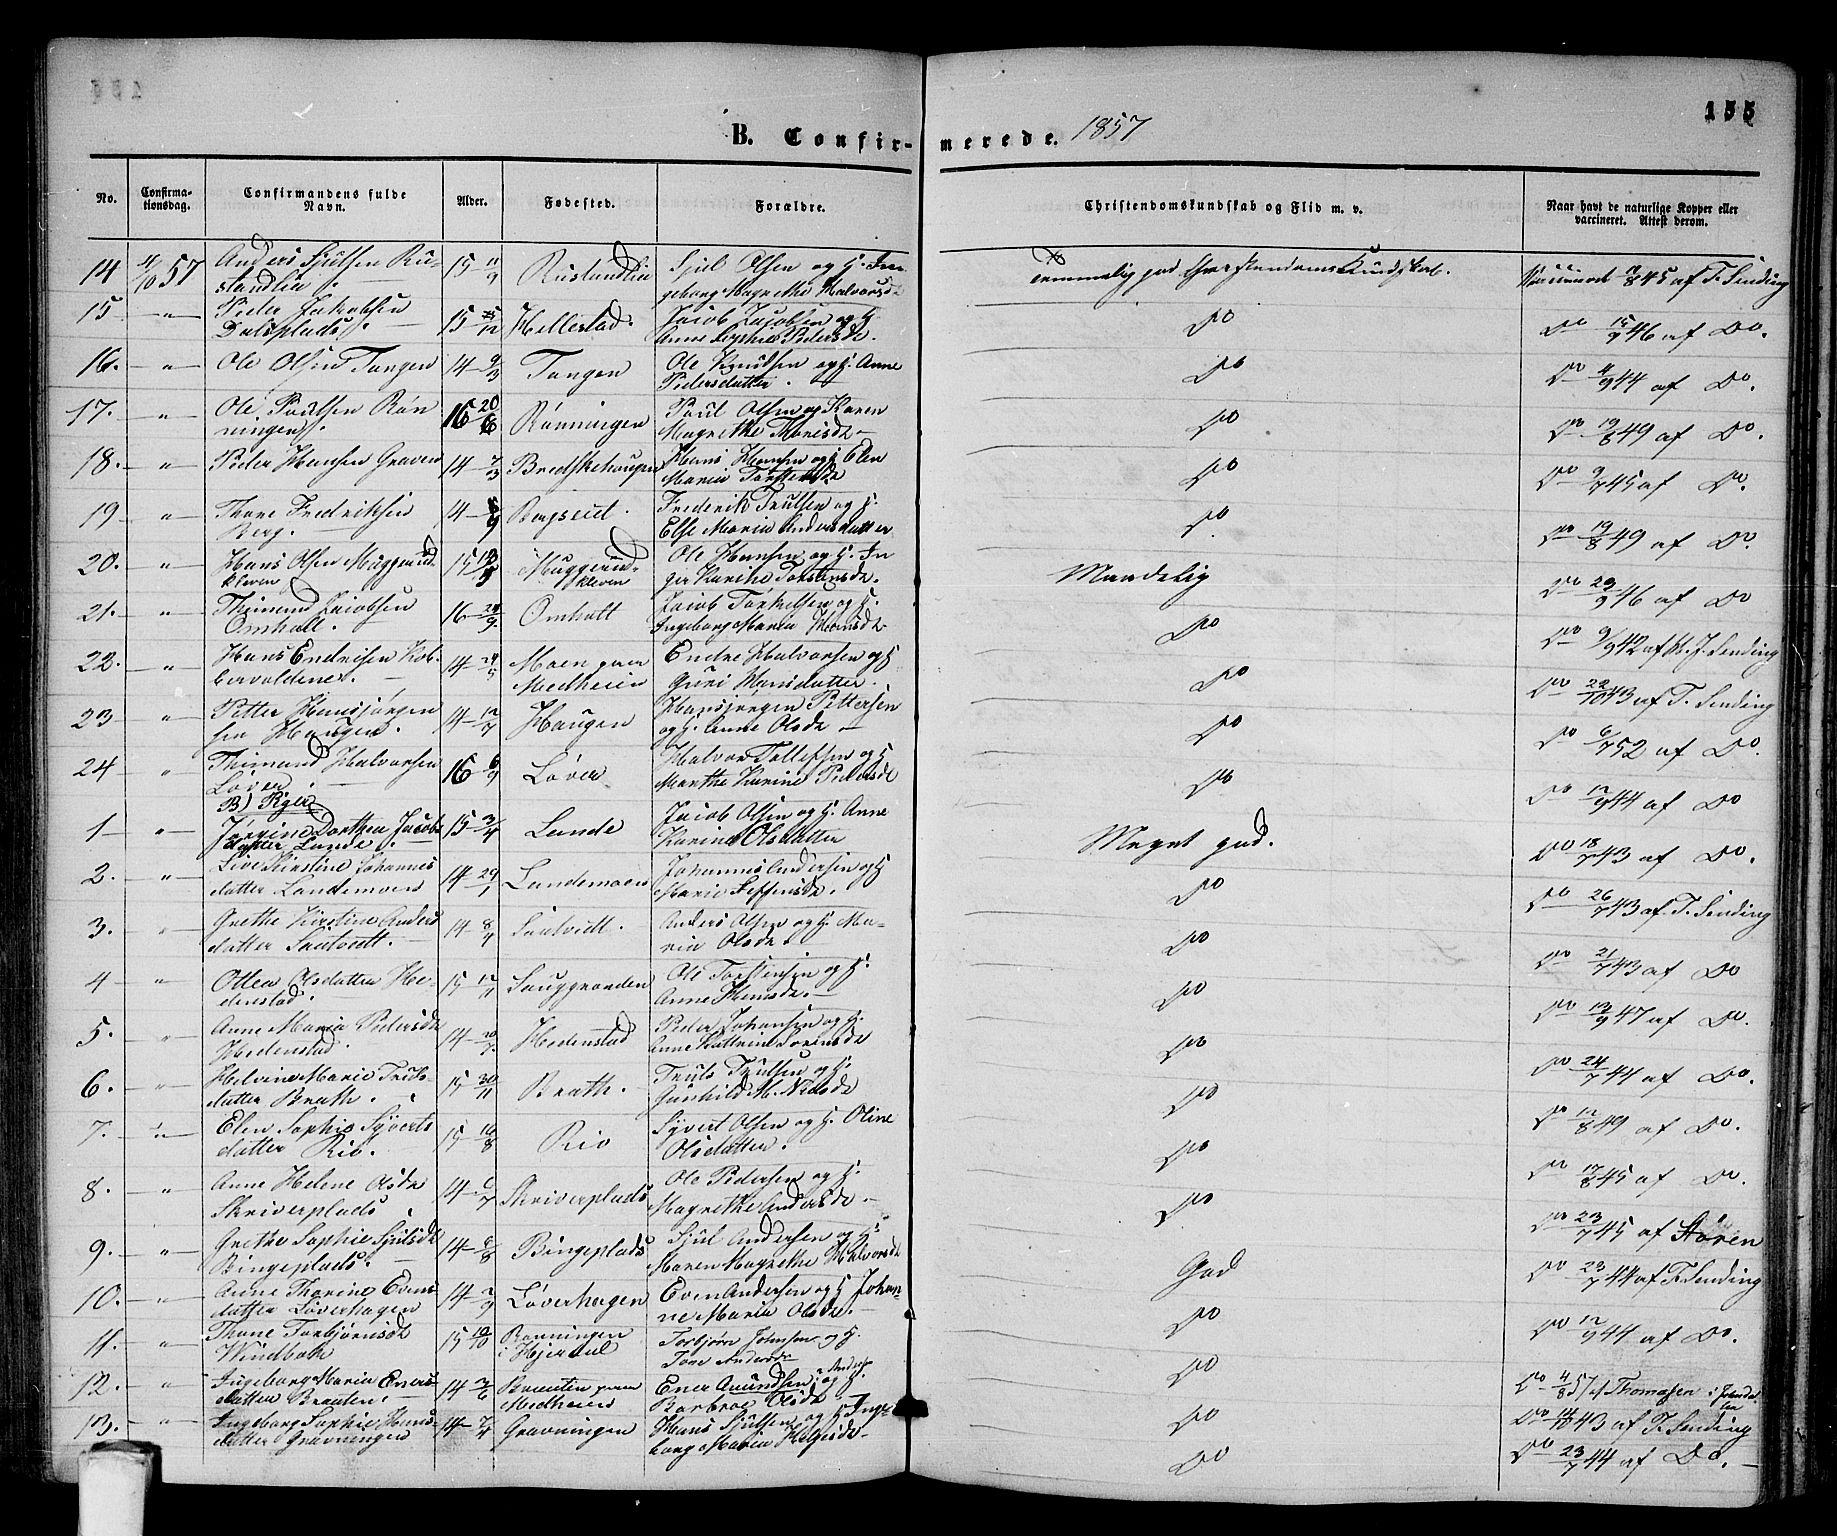 155
B. Confirmerede. 1857
No.
Confirmationsdag.
Confirmandens fulde Navn.
Alder.
Fødested.
Forældre.
Christendomskundskab og Flid m. v.
Naar havt de naturlige Kopper eller vaccineret. Attest derom.
14 57 Anders Sjulsen Rustandlia 15 11/9 Rustandlia Sjul Olsen og H. Ingeborg Magrethe Halvorsd. Temmelig god Christendoms Kundskab. Vaccineret 845 af T. Sending
15. " Peder Jakobsen Dalsplads. 15 Hellestad. Jacob Jacobsen og H Anne Sophie Pedersd. Do Do 15/9 46 af Do.
16. " Ole Olsen Tangen 14 9/3 Tangen Ole Knudsen og H. Anne Pedersdatter. Do Do 4/9 44 af Do.
17. " Ole Poulsen Rønningen. 16 20/6 Rønningen Poul Olsen og Karen Magrethe Do Do 19/8 49 af Do.
18. " Peder Hansen Graven 14 7/3 Bredskehaugen Hans Hansen og H Elen Maria Do Do 9/7 45 af Do.
19 " Thore Fredriksen Berg. 14 Frederik Trulsen og H. Else Maria Andersdatter Do Do 19/8 49 af Do.
20. " Hans Olsen Muggerudkleven 15 Muggerudkleven Ole Hansen og H. Inger Karine Torstensd. Maadelig Do 23/9 46 af Do
21. " Thimand Jacobsen Omholt. 16 Omholt Jacob Torkelsen og H. Ingeborg Maria Hansd. Do Do 9/9 42 af T. Sending
22. " Hans Endresen Kobbervoldene. 14 Moen paa Medheien Endre Halvorsen og H Guri Hansdatter. Do Do 22/10 43 af T. Sending
23 " Petter Hansjørgensen Haugen. 14 12/7 Haugen Hansjørgen Pettersen og H. Anne Olsd. Do Do 6/7 52 af Do.
24 " Thimand Halvorsen Løver 16 Løver Halvor Tollefsen og H Marthe Karine Pedersd. Do Do 12/9 44 af Do
B) Piger
1 " Jørgine Dorthea Jacobsdatter Lunde. 15 3/4 Lunde Jacob Olsen og H. Anne Karine Olsdatter Meget god. Do 18/7 43 af Do.
2. " Live Kirstine Johannesdatter Landemoen 14 29/1 Landemoen Johannes Andersen og H Marie Do Do 26/7 43 af T. Sending
3. " Grethe Kirstine Andersdatter 14 Anders Olsen og H. Maria Olsd. Do Do 21/7 43 af Do
4 " Ottea Olsdatter Hedenstad. 15 12/11 Ole Torstensen og H. Anne Hansd. Do Do 13/9 47 af Do.
5. " Anne Maria Pedersd. Hedenstad. 14 Hedenstad Peder Johansen og H. Anne Kattrine Do Do 24/7 44 af Do.
6. " Helvine Marie Trulsdatter Brath. 15 20/11 Brath. Truls Trulsen og H. Gunhild M. Nielsd. Do Do 12/8 49 af Do.
7. " Elen Sophie Syvertsdatter Rio. 15 16/8 Rio Syvert Olsen og H. Oline Olsdatter. Do Do 17/8 45 af Do.
8. " Anne Helene Olsd. Skriverplads 14 6/7 Skriverplads Ole Pedersen og H. Magrethe Andersd. Do Do 23/7 45 af Støren
9. " Grethe Sophie Sjulsd. Bingeplads. 14 6/8 Bingeplads Sjul Andersen og H. Maren Magrethe Halvorsd. God Do 23/7 44 af T. Sending
10. " Anne Thorine Evensdatter Løverhagen 14 2/9 Løverhagen Even Andersen og H Johanne Maria Olsd. Do Do 12/9 44 af Do.
11. " Thone Torbjørnsd. 15 10/10 Rønningen i Hjerdal Torbjørn Johnsen og H. Tone Andersd. Do Do 4/8 57 af Thomasen i
12. " Ingeborg Maria Eversdatter Braaten. 14 2/6 Braaten paa Medheien Ever Amundsen og H. Barbroe Olsd. Do Do 14/10 43 af T. Sending
13. " Ingeborg Sophie Hansdatter Gravningen 14 7/4 Gravningen Hans Sjulsen og H Ingeborg Maria Helgesd. Do Do 23/7 44 af Do.